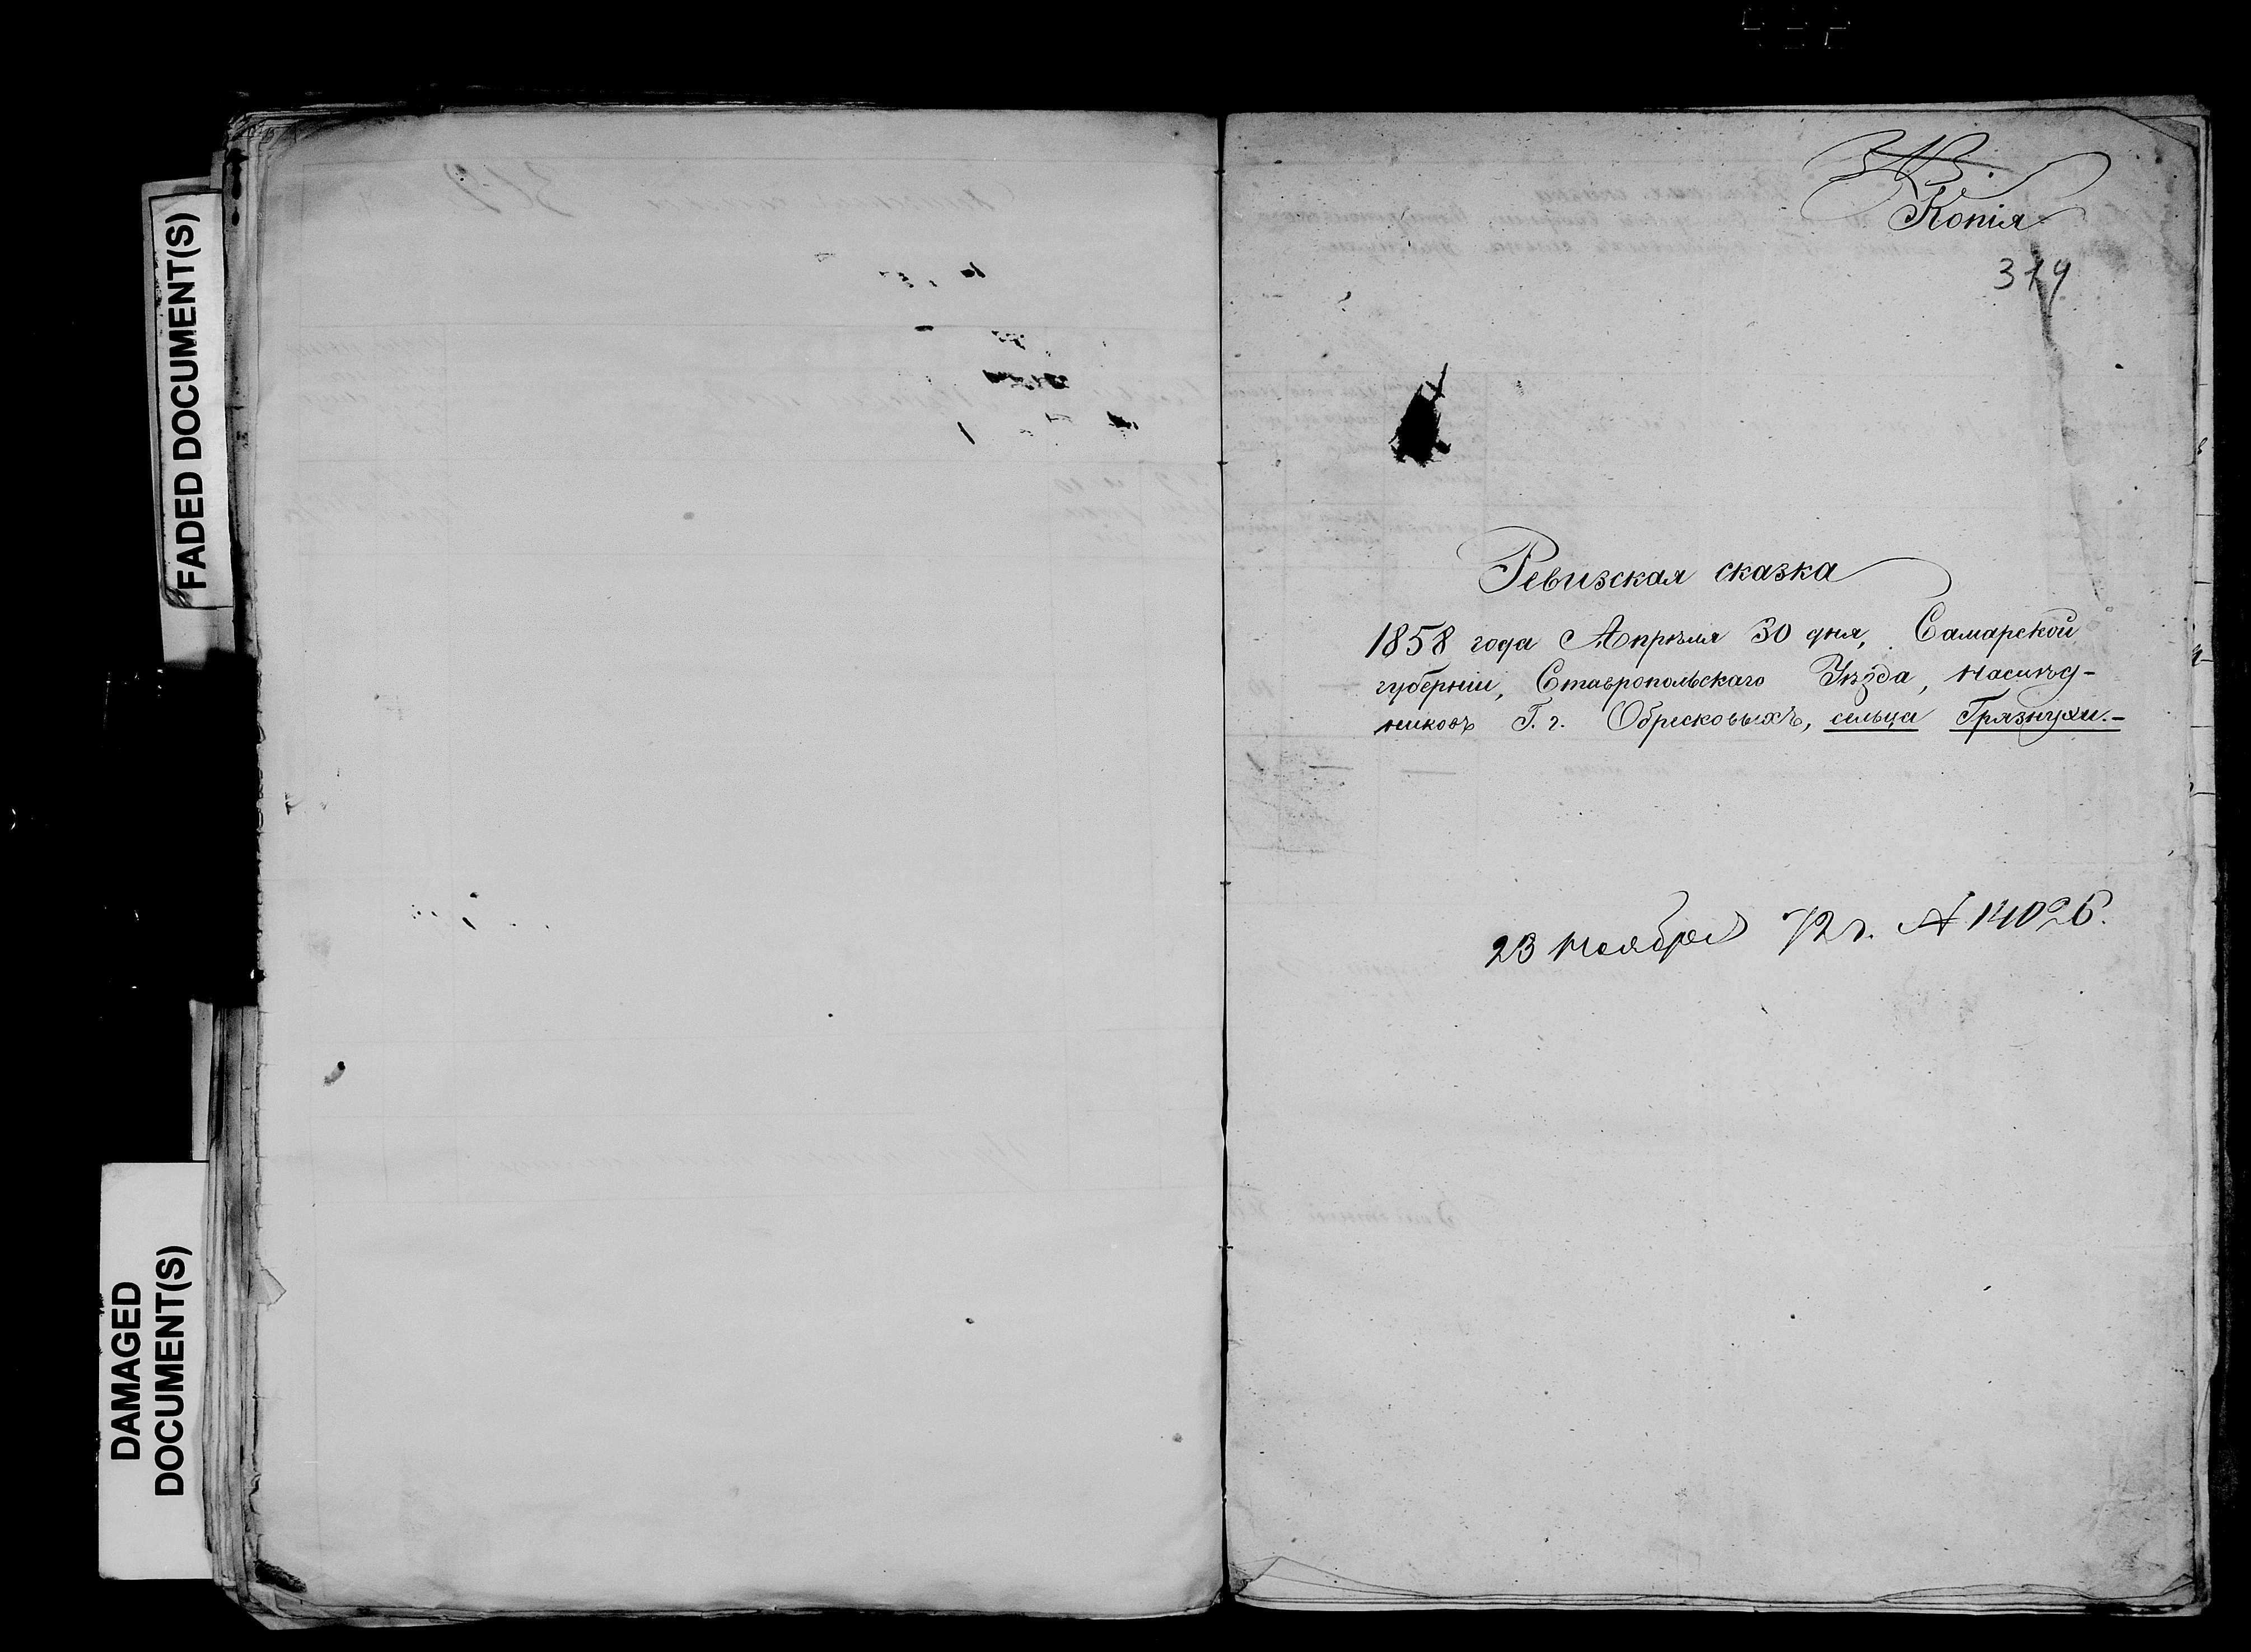 FADED DOCUMENT(S)
DAMAGED
DOCUMENT(S)
Копія
379
Ревизская сказка
1858 года Апрѣля 30 дня, Самарской
губерніи, Ставропольскаго Уѣзда, наслѣд-
никовъ Г. г. Обресковыхъ, сельца Грязнухи.-
23 Ноября 72 г. № 14026.